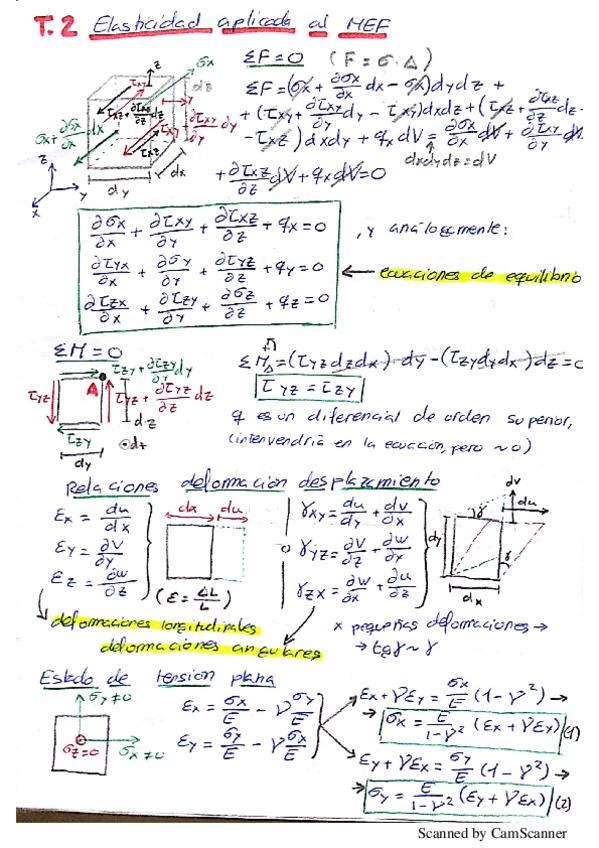 T.2 Elasticidad aplicada al MEF
ΣF=0 (F=σ·Δ)
ΣF=(σx+∂σx/∂x dx-σx)dydz+
+(τxy+∂τxy/∂y dy-τxy)dxdz+(τxz+∂τxz/∂z dz-
-τxz)dxdy+qx dV=∂σx/∂x dV+∂τxy/∂y dV
dxdydz=dV
+∂τxz/∂z dV+qx dV=0
∂σx/∂x+∂τxy/∂y+∂τxz/∂z+qx=0 , y análogamente:
∂τyx/∂x+∂σy/∂y+∂τyz/∂z+qy=0 ← ecuaciones de equilibrio
∂τzx/∂x+∂τzy/∂y+∂σz/∂z+qz=0
ΣM=0
τzy+∂τzy/∂y dy
τyz A τyz+∂τyz/∂z dz
dz
τzy
dy
ΣM_A=(τyz dzdx)dy-(τzy dydx)dz=0
τyz=τzy
q es un diferencial de orden superior,
(intervendría en la ecuación, pero ~0)
Relaciones deformación desplazamiento
εx=du/dx
εy=∂v/∂y
εz=∂w/∂z
dx du
(ε=ΔL/L)
γxy=du/dy+dv/∂x
γyz=∂v/∂z+∂w/∂y
γzx=∂w/∂x+∂u/∂z
dv
du
dy
γ
dx
deformaciones longitudinales
deformaciones angulares
x pequeñas deformaciones →
→ tgγ~γ
Estado de tensión plana
σy≠0
σz=0 σx≠0
εx=σx/E-ν σy/E
εy=σy/E-ν σx/E
εx+νεy=σx/E (1-ν²) →
→ σx=E/1-ν² (εx+νεy) (1)
εy+νεx=σy/E (1-ν²) →
→ σy=E/1-ν² (εy+νεx) (2)
Scanned by CamScanner